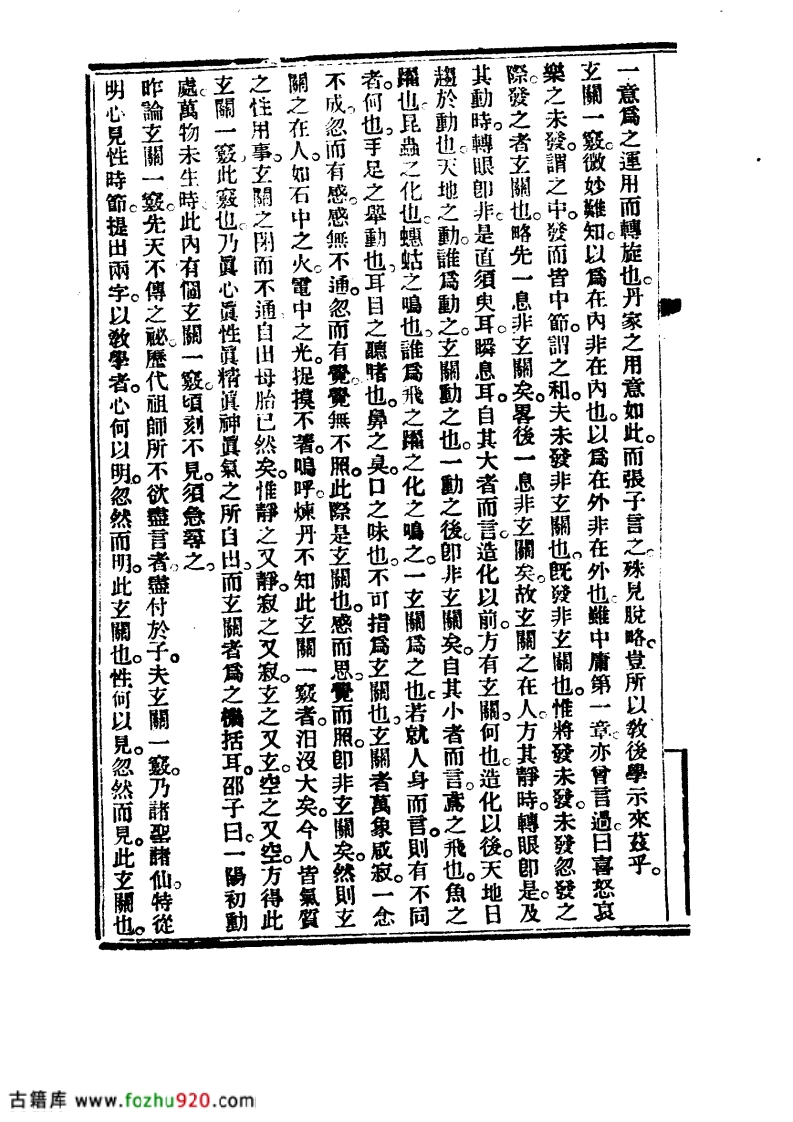 一意爲之運用而轉旋也。丹家之用意如此。而張子言之。殊見脫略。豈所以敎後學示來茲乎。
玄關一竅。微妙難知。以爲在內。非在內也。以爲在外。非在外也。雖中庸第一章。亦曾言過。曰喜怒哀
樂之未發。謂之中。發而皆中節。謂之和。夫未發非玄關也。旣發非玄關也。惟將發未發。未發忽發之
際。發之者玄關也。略先一息。非玄關矣。畧後一息。非玄關矣。故玄關之在人。方其靜時。轉眼卽是。及
其動時。轉眼卽非。是直須臾耳。瞬息耳。自其大者而言。造化以前。方有玄關。何也。造化以後。天地日
趨於動也。天地之動。誰爲動之。玄關動之也。一動之後。卽非玄關矣。自其小者而言。鳶之飛也。魚之
躍也。昆蟲之化也。蟪蛄之鳴也。誰爲飛之躍之化之鳴之。一玄關爲之也。若就人身而言。則有不同
者。何也。手足之舉動也。耳目之聽睹也。鼻之臭。口之味也。不可指爲玄關也。玄關者。萬象咸寂。一念
不成。忽而有感。感無不通。忽而有覺。覺無不照。此際是玄關也。感而思。覺而照。卽非玄關矣。然則玄
關之在人。如石中之火。電中之光。捉摸不著。嗚呼。煉丹不知此玄關一竅者。汩沒大矣。今人皆氣質
之性用事。玄關之閉而不通。自出母胎已然矣。惟靜之又靜。寂之又寂。玄之又玄。空之又空。方得此
玄關一竅。此竅也。乃眞心眞性眞精眞神眞氣之所自出。而玄關者爲之機括耳。邵子曰。一陽初動
處。萬物未生時。此內有個玄關一竅。頃刻不見。須急尋之。
昨論玄關一竅。先天不傳之祕。歷代祖師所不欲盡言者。盡付於子。夫玄關一竅。乃諸聖諸仙。特從
明心見性時節。提出兩字。以敎學者。心何以明。忽然而明。此玄關也。性何以見。忽然而見。此玄關也。
古籍库 www.fozhu920.com